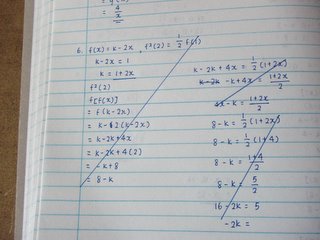 = 4/x
6. f(x) = k-2x , f²(2) = 1/2 f(1)
k-2x = 1
k = 1+2x
f²(2)
f[f(x)]
= f(k-2x)
= k-2(k-2x)
= k-2k+4x
= k-2k+4(2)
= -k+8
= 8-k
k-2k+4x = 1/2 (1+2x)
k-2k -k+4x = 1+2x/2
4x-k = 1+2x/2
8-k = 1/2 (1+2x)
8-k = 1/2 (1+4)
8-k = 1+4/2
8-k = 5/2
16-2k = 5
-2k =